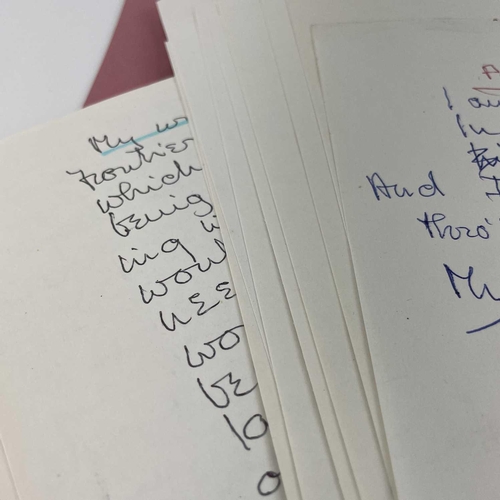 My wo
frontier
which
being
ing w
woul
nee
wo
be
lo
o
A
I am
In
And I
thro'
My